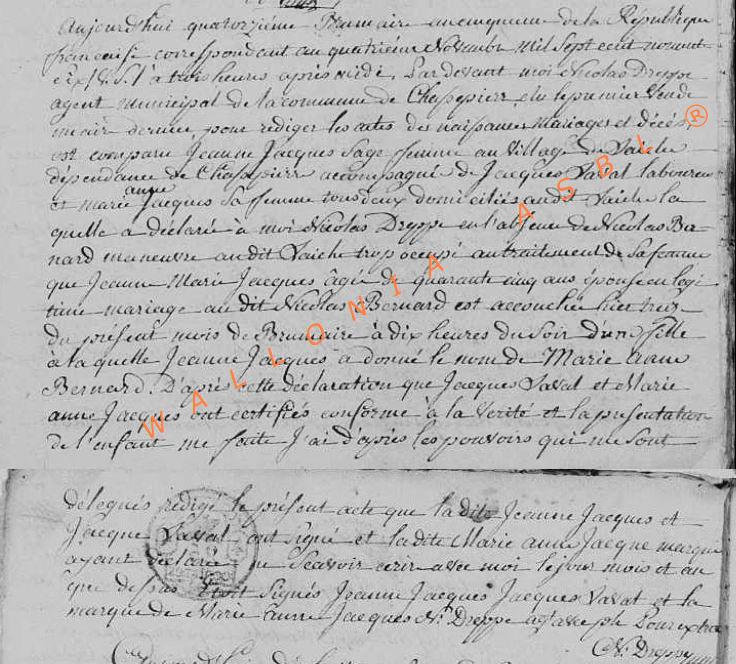 Aujourd'hui quatorzième Brumaire an cinquieme de la République
francaise correspondant au quatrieme Novembre mil sept cent nonante
six (V.S.) à trois heures après midi, Par devant moi Nicolas Dreppe
agent municipal de la commune de Chassepierre, élu le premier Vende
miair dernier, pour rediger les actes des naissances mariages et décés,
est comparu Jeanne Jacques sage femme au village de Laiche
dépendance de Chassepierre accompagné de Jacques Lavat laboureur
et marie anne Jacques sa femme tous deux domiciliés audit Laiche la
quelle a déclarée à moi Nicolas Dreppe en l'absence de Nicolas Ber
nard maneuvre audit Laiche trop occupé au traitement de sa femme
que Jeanne Marie Jacques âgée de quarante cinq ans épouse en legi
time mariage au dit Nicolas Bernard est accouchée hier treize
du présent mois de Brumaire à dix heures du soir d'une fille
à la quelle Jeanne Jacques a donné le nom de Marie anne
Bernard. D'après cette déclaration que Jacques Lavat et Marie
anne Jacques ont certifiés conforme à la verité et la présentation
de l'enfant me faite J'ai d'après les pouvoirs qui me sont
délegués rédigé le présent acte que la dite Jeanne Jacques et
Jacque Lavat ont signé et la dite Marie anne Jacque marqué
ayant déclaré ne scavoir ecrir avec moi le jour mois et an
que dessus Etoit signés Jeanne Jacques Jacques Lavat et la
marque de Marie anne Jacques N. Dreppe agt avec ph Pour extrait
N. Dreppe
WALLONIA ASBL ®